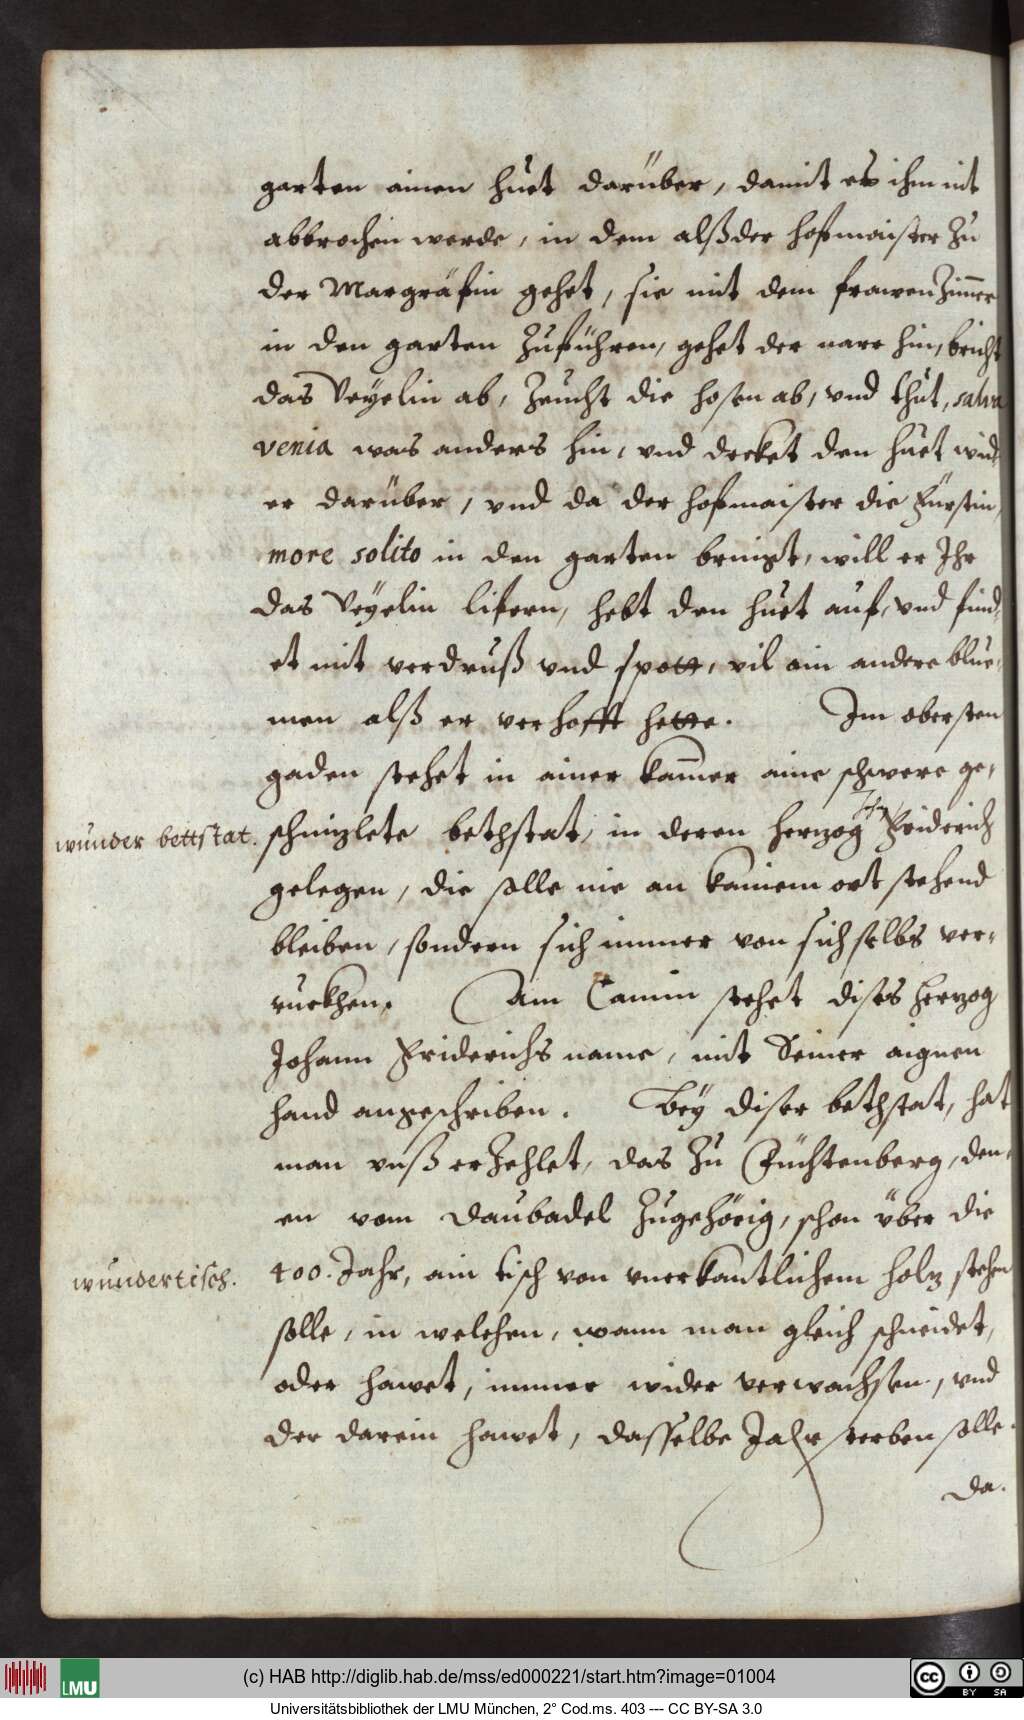 garten ainen huet darüber, damit es ihm nit
abbrochen werde, in dem alß der hofmaister zu
der Margräfin gehet, sie mit dem frawenzim̄er
in den garten zuführen, gehet der narr hin, bricht
das Veyelin ab, zeucht die hosen ab, vnd thut, salva
venia was anders hin, vnd decket den huet wid
er darüber, vnd da der hofmaister die Fürstin,
more solito in den garten bringt, will er Ihr
das Veyelin lifern, hebt den huet auf, vnd find,
et mit verdruß vnd spott, vil ain andere blue,
men alß er verhofft hette. Im obersten
gaden stehet in ainer kam̄er aine schwere ge,
wunder bettstat. schnizlete bethstat, in deren herzog Friderich
gelegen, die solle nie an kainem ort stehend
bleiben, sondern sich immer von sich selbs ver,
ruckhen. Am Camin stehet dises herzog
Johann Friderichs name, mit Seiner aignen
hand angeschriben. Bey diser bethstat, hat
man vnß erzehlet, das zu Züchtenberg, den,
en vom Daubadel zugehörig, schon über die
wundertisch. 400. Jahr, ain tisch von vnerkantlichem holz stehen
solle, in welchen, wann man gleich schneidet,
oder hawet, immer wider verwachsen, vnd
der darein hawet, dasselbe Jahr sterben solle.
da.
(c) HAB http://diglib.hab.de/mss/ed000221/start.htm?image=01004
LMU
cc BY SA
Universitätsbibliothek der LMU München, 2° Cod.ms. 403 --- CC BY-SA 3.0